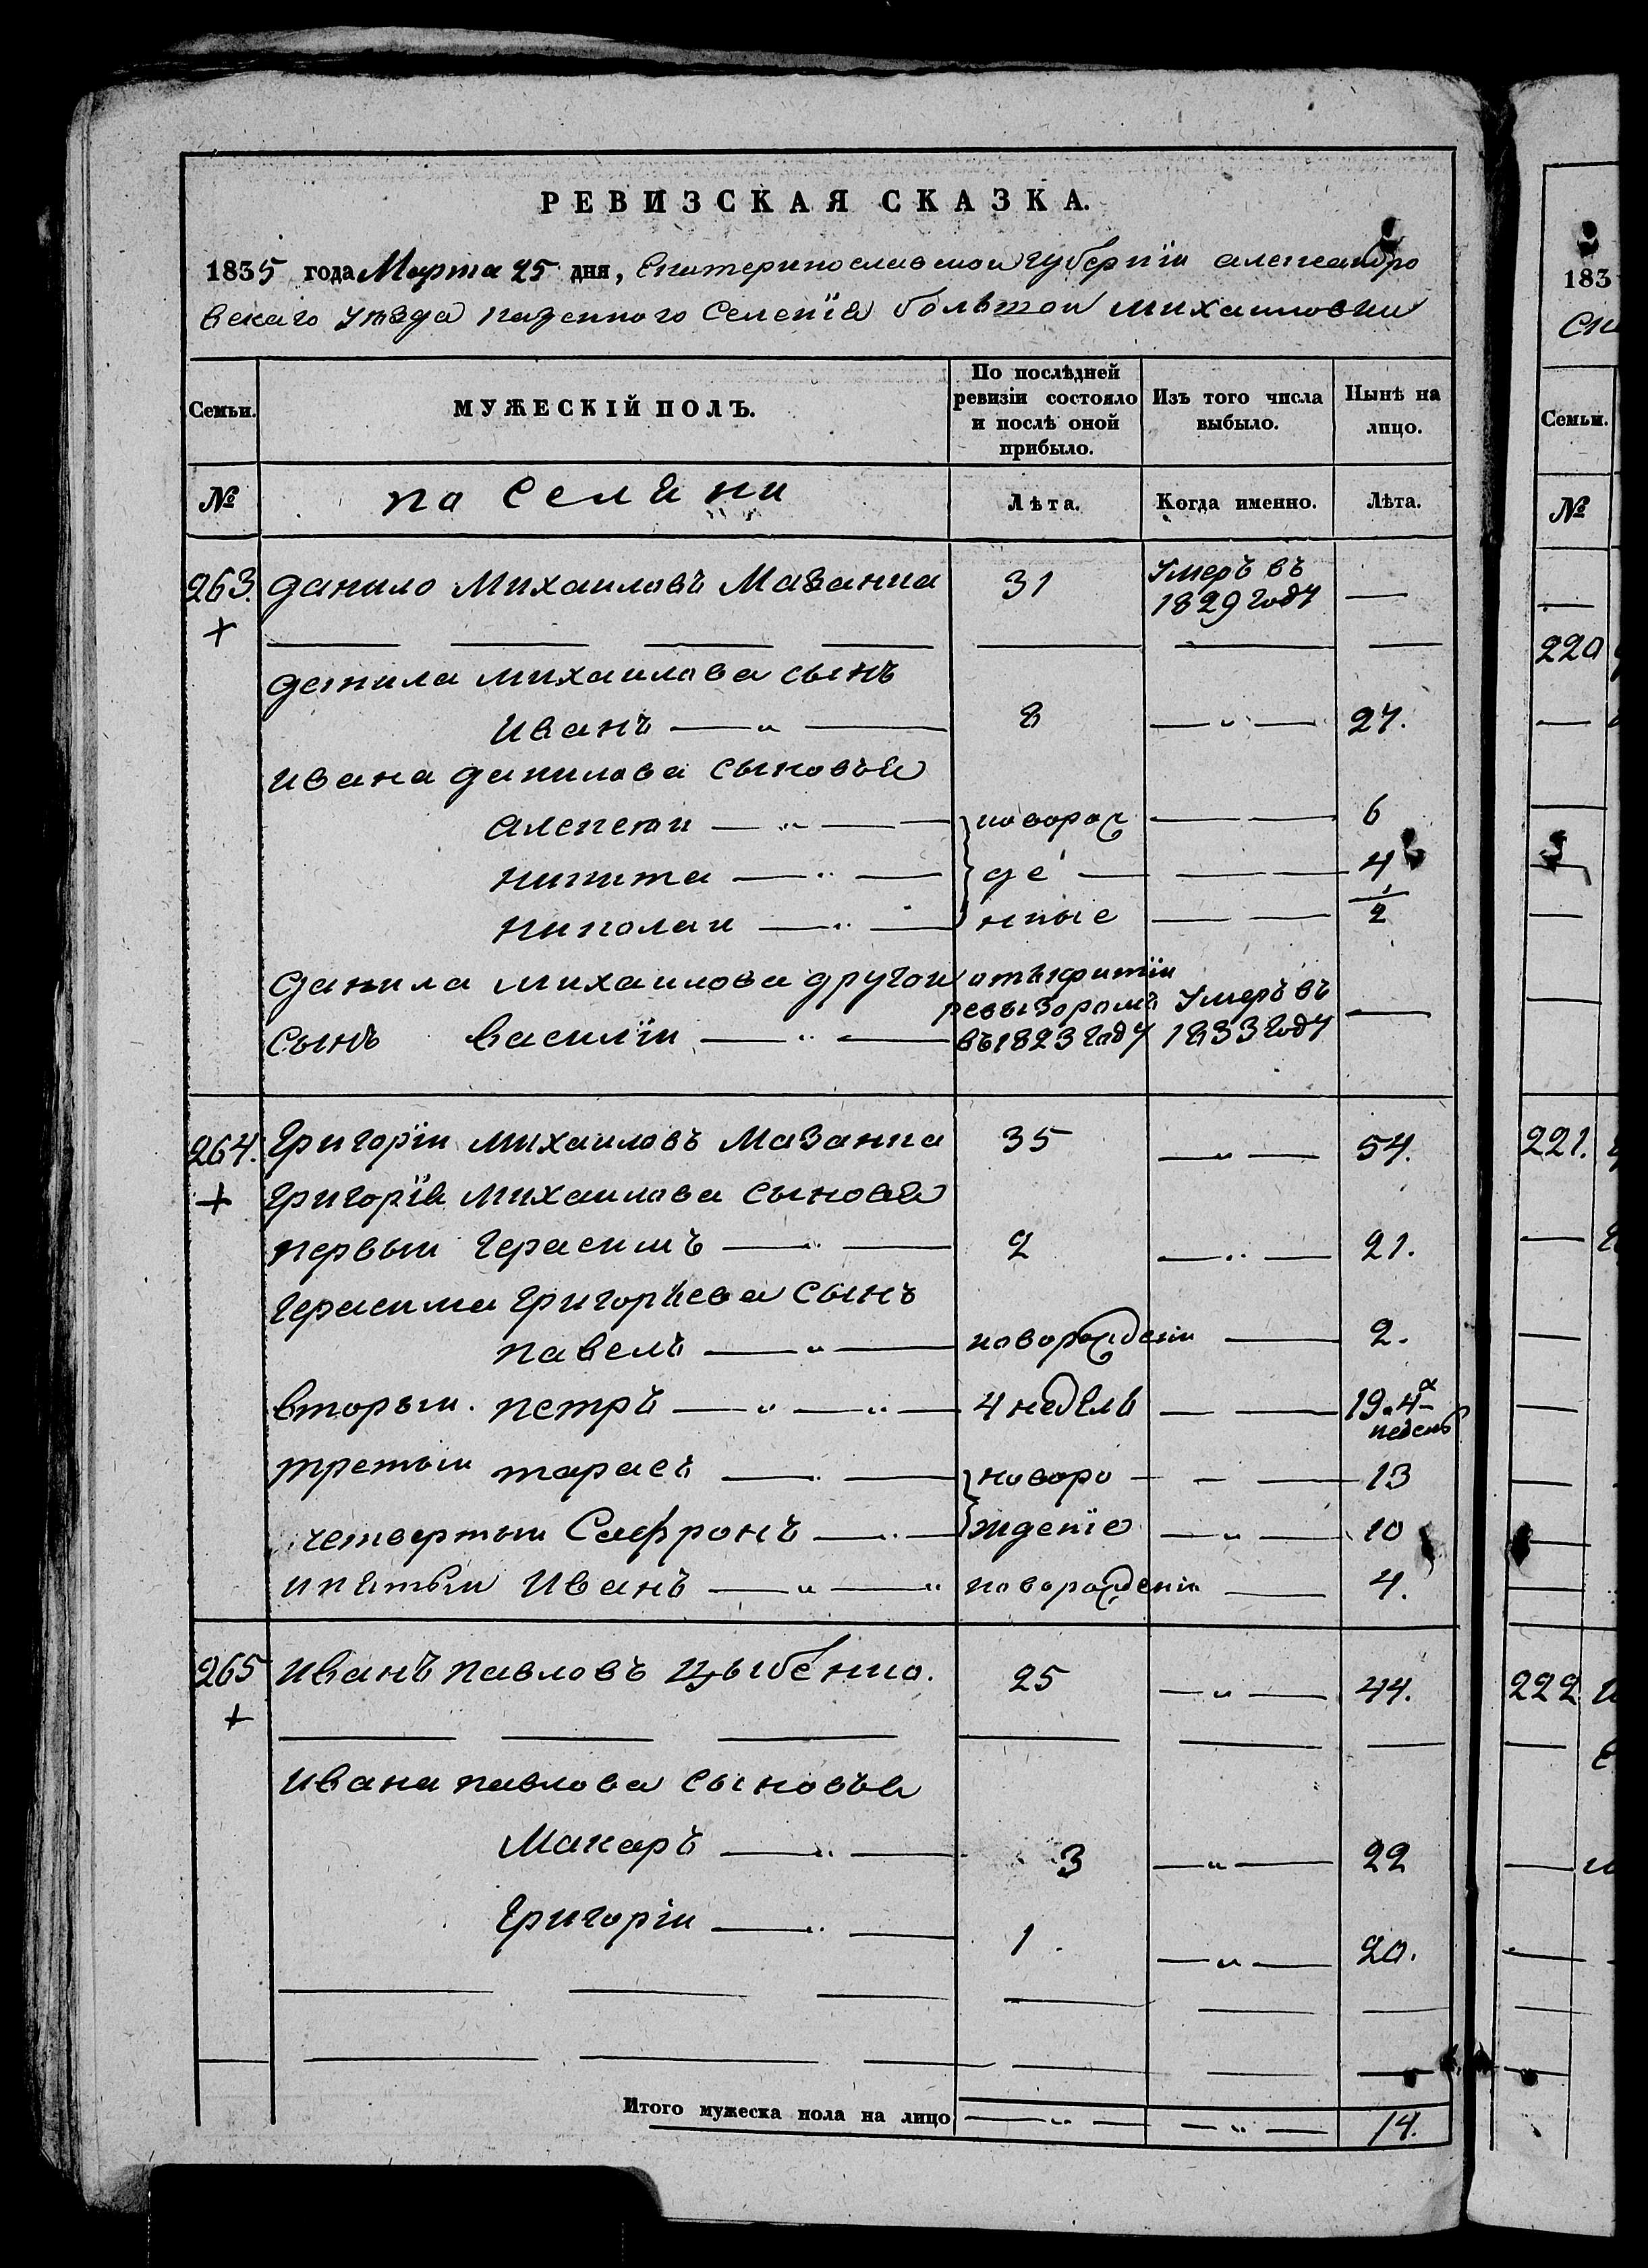 РЕВИЗСКАЯ СКАЗКА.
1835 года Марта 25 дня, Екатеринославской губернїи александро
вскаго уѣзда казенного Селенїя большой михайловки
Семьи.
МУЖЕСКІЙ ПОЛЪ.
По послѣдней ревизіи состояло и послѣ оной прибыло.
Изъ того числа выбыло.
Нынѣ на лицо.
№
поселяни
Лѣта.
Когда именно.
Лѣта.
263. данило Михаиловъ Мазанка 31 Умеръ въ 1829 году —
данила михаилова сынъ
иванъ 8 27.
ивана данилова сыновья
алексей новорож 6
никита де 4
николай нные 1/2
данила михаилова другой откритїи
сынъ василїй ревызоромъ въ 1823 году Умеръ въ 1833 году —
264. Григорїй михаиловъ Мазанка 35 54.
Григорїя михаилова сыновя
первый герасимъ 2 21.
герасима григорьева сынъ
павелъ новорожденїи 2.
вторый. петръ 4 неделѣ 19. 4х недель
третый тарасъ новоро 13
четвертый Сафронъ жденїе 10
ипятый Иванъ новорожденїи 4.
265 иванъ павловъ Цыбенко. 25 44.
ивана павлова сыновья
Макаръ 3 22
Григорїй 1. 20.
Итого мужеска пола на лицо 14.
183
Семьи.
№
220
221.
222